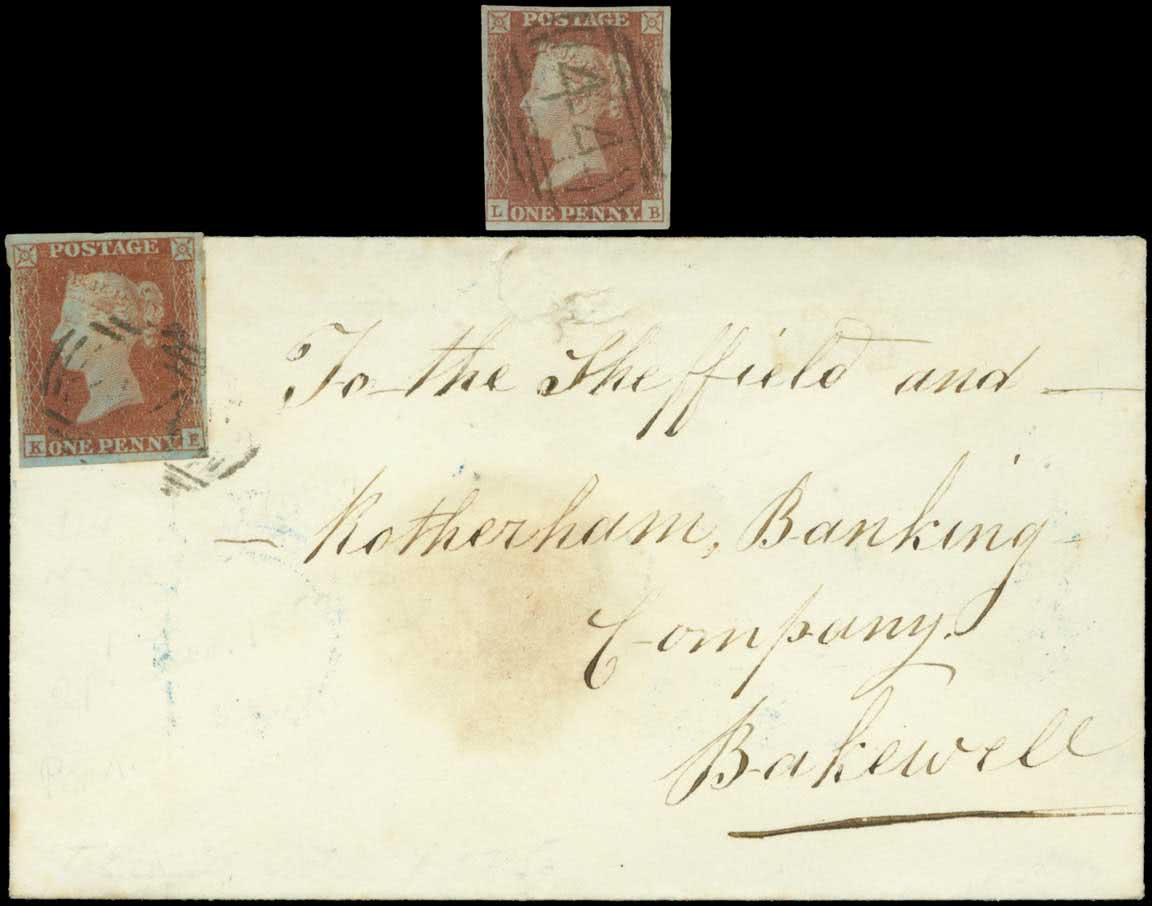 POSTAGE
44
L ONE PENNY B
POSTAGE
K ONE PENNY E
To the Sheffield and
Rotherham, Banking
Company.
Bakewell